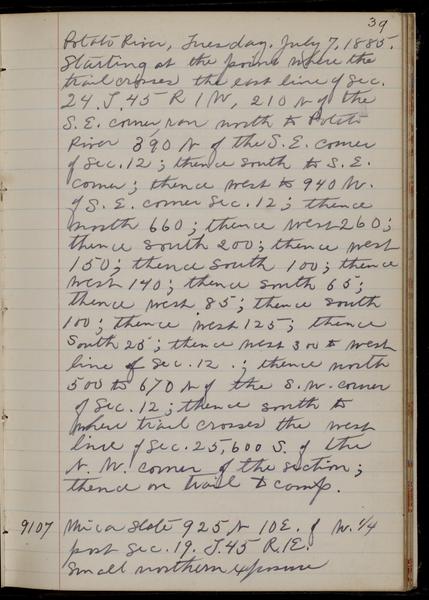 39
Potato River, Tuesday, July 7, 1885.
Starting at the point where the
trail crosses the east line of Sec.
24. T. 45 R 1 W, 210 N of the
S. E. corner, ran north to Potato
River 390 N of the S. E. corner
of Sec. 12; thence south to S. E.
corner; thence west to 940 W.
of S. E. corner Sec. 12; thence
north 660; thence west 260;
thence south 200; thence west
150; thence south 100; thence
west 140; thence south 65;
thence west 85; thence south
100; thence west 125; thence
south 25; thence west 300 to west
line of Sec. 12.; thence north
500 to 670 N of the S. W. corner
of Sec. 12; thence south to
where trail crosses the west
line of Sec. 25, 600 S. of the
N. W. corner of the section;
thence on trail to camp.
9107 Mica slate 925 N 10 E. of W. 1/4
post Sec. 19. T. 45 R. 1 E.
Small northern exposure